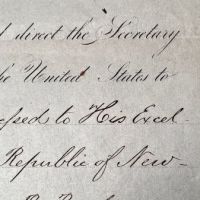 d direct the Secretary
the United States to
essed to His Excel-
Republic of New-